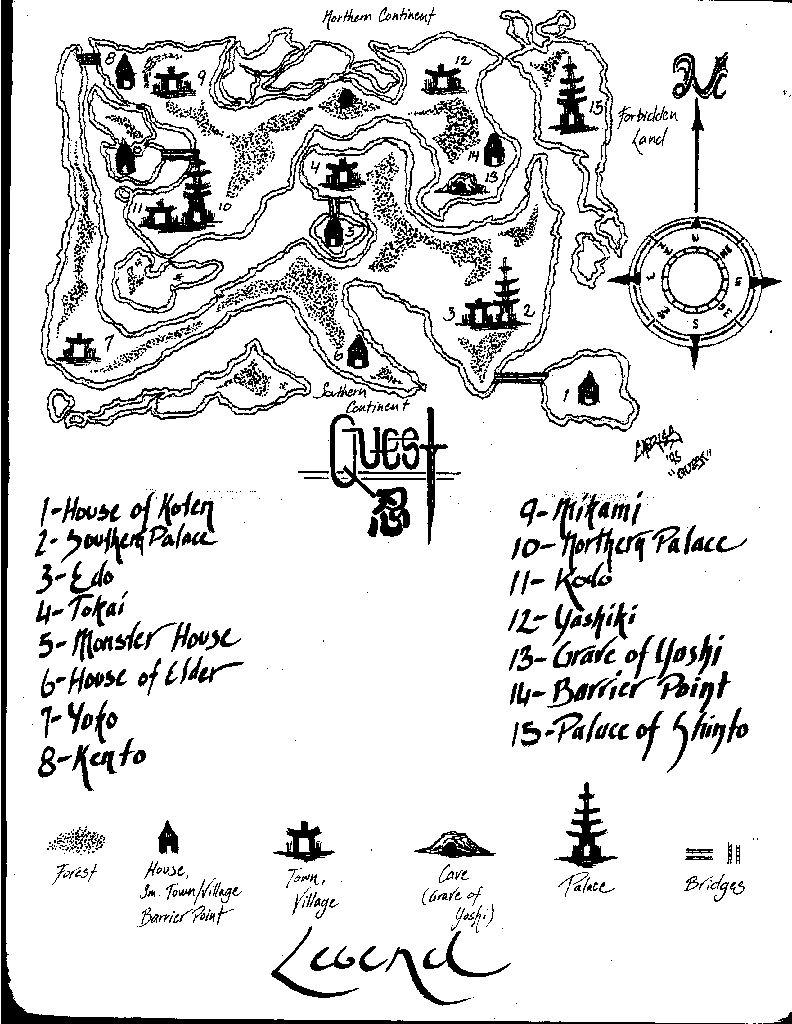 Northern Continent
8
9
12
15
Forbidden
Land
N
14
13
4
11
10
5
3
2
7
6
1
S
Southern
Continent
Quest
忍
'95
"QUEST"
1-House of Koten
2- Southern Palace
3-Edo
4-Tokai
5-Monster House
6-House of Elder
7-Yoko
8-Kento
9-Mikami
10-Northern Palace
11-Kodo
12-Yashiki
13-Grave of Yoshi
14-Barrier Point
15-Palace of Shinto
Forest
House,
Sm. Town/Village
Barrier Point
Town,
Village
Cave
(Grave of
Yoshi)
Palace
Bridges
Legend